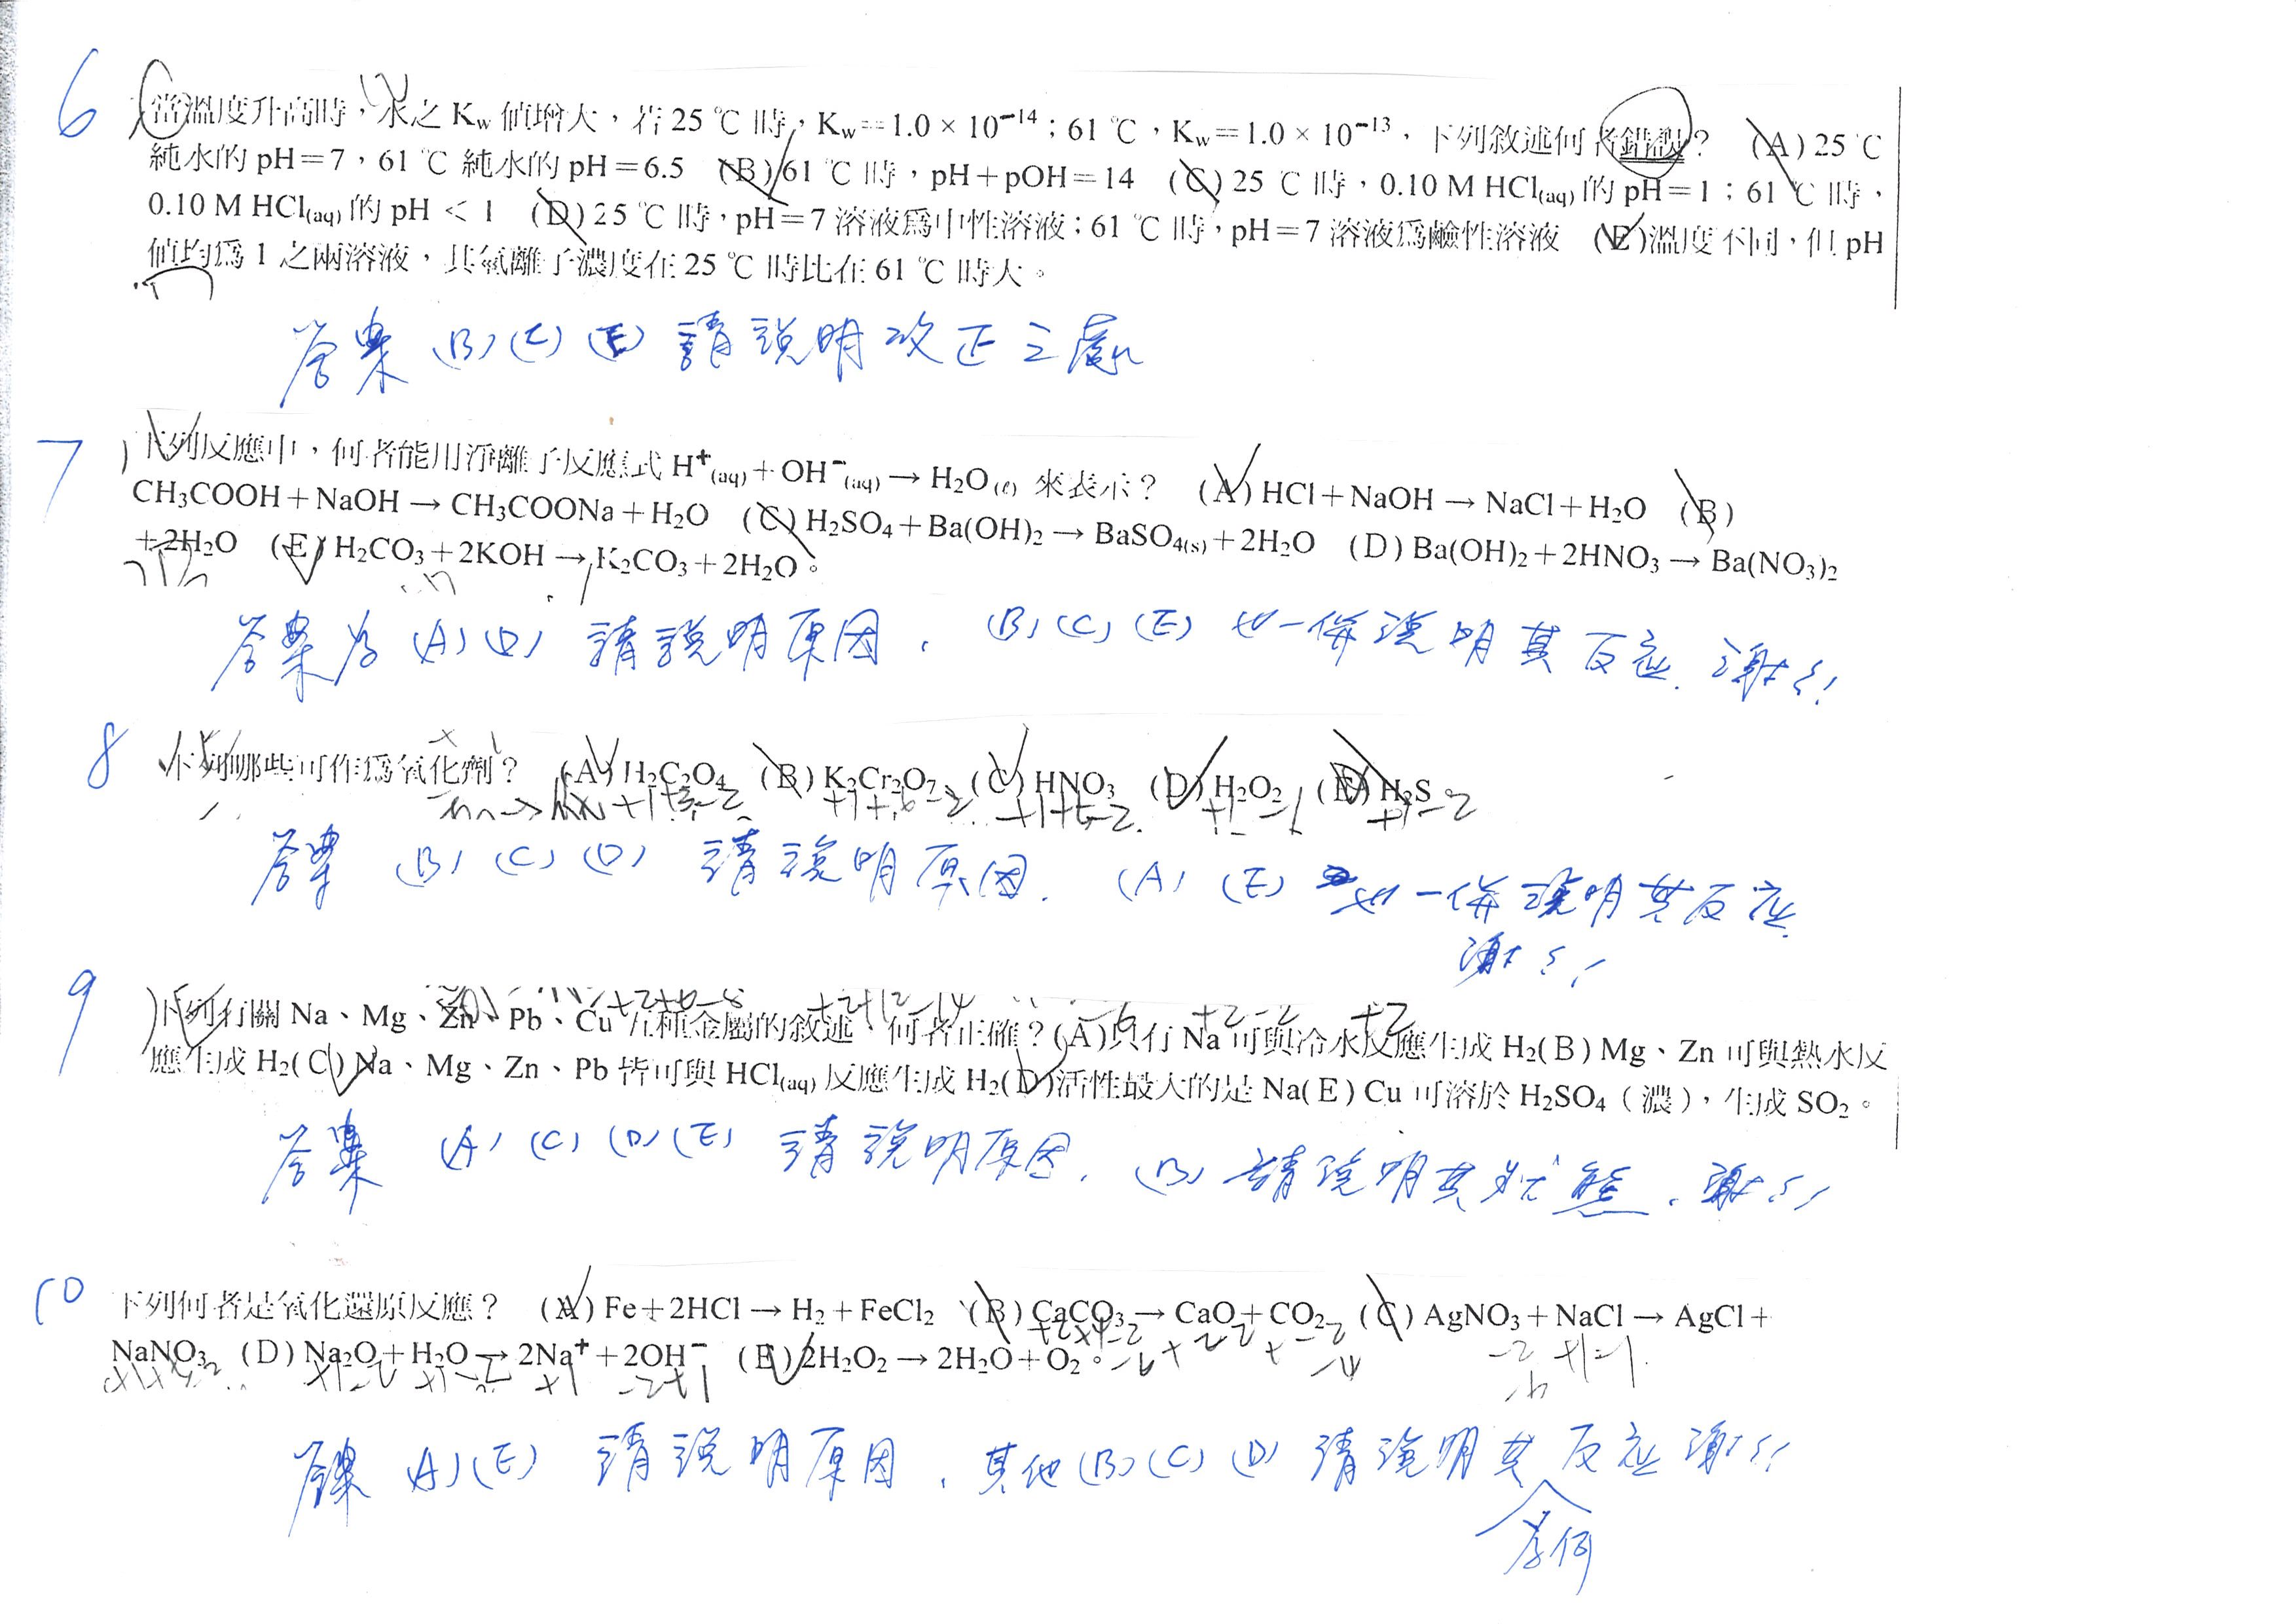 6
當溫度升高時，水之 Kw 值增大，若 25 ℃ 時，Kw＝1.0 × 10⁻¹⁴；61 ℃，Kw＝1.0 × 10⁻¹³，下列敘述何者錯誤？ (A) 25 ℃
純水的 pH＝7，61 ℃ 純水的 pH＝6.5 (B) 61 ℃ 時，pH＋pOH＝14 (C) 25 ℃ 時，0.10 M HCl(aq) 的 pH＝1；61 ℃ 時，
0.10 M HCl(aq) 的 pH ＜ 1 (D) 25 ℃ 時，pH＝7 溶液為中性溶液；61 ℃ 時，pH＝7 溶液為鹼性溶液 (E) 溫度不同，但 pH
值均為 1 之兩溶液，其氫離子濃度在 25 ℃ 時比在 61 ℃ 時大。
答案 (B) (C) (E) 請說明改正之處
7
下列反應中，何者能用淨離子反應式 H⁺(aq)＋OH⁻(aq) → H₂O(ℓ) 來表示？ (A) HCl＋NaOH → NaCl＋H₂O (B)
CH₃COOH＋NaOH → CH₃COONa＋H₂O (C) H₂SO₄＋Ba(OH)₂ → BaSO₄(s)＋2H₂O (D) Ba(OH)₂＋2HNO₃ → Ba(NO₃)₂
＋2H₂O (E) H₂CO₃＋2KOH → K₂CO₃＋2H₂O。
答案為 (A) (D) 請說明原因，(B) (C) (E) 也一併說明其反應. 謝謝!
8
下列哪些可作為氧化劑？ (A) H₂C₂O₄ (B) K₂Cr₂O₇ (C) HNO₃ (D) H₂O₂ (E) H₂S
+1+3-2 +1+6-2 +1+5-2 +1-1 +1-2
答案 (B) (C) (D) 請說明原因. (A) (E) 也一併說明其反應
謝謝!
9
+2+6-8 +2+12-14 -6 +2-2 +2
下列有關 Na、Mg、Zn、Pb、Cu 五種金屬的敘述，何者正確？(A) 只有 Na 可與冷水反應生成 H₂(B) Mg、Zn 可與熱水反
應生成 H₂(C) Na、Mg、Zn、Pb 皆可與 HCl(aq) 反應生成 H₂(D) 活性最大的是 Na(E) Cu 可溶於 H₂SO₄（濃），生成 SO₂。
答案 (A) (C) (D) (E) 請說明原因. (B) 請說明其狀態. 謝謝!
10
下列何者是氧化還原反應？ (A) Fe＋2HCl → H₂＋FeCl₂ (B) CaCO₃ → CaO＋CO₂ (C) AgNO₃＋NaCl → AgCl＋
NaNO₃ (D) Na₂O＋H₂O → 2Na⁺＋2OH⁻ (E) 2H₂O₂ → 2H₂O＋O₂。
答案 (A) (E) 請說明原因，其他 (B) (C) (D) 請說明其為何反應 謝謝!